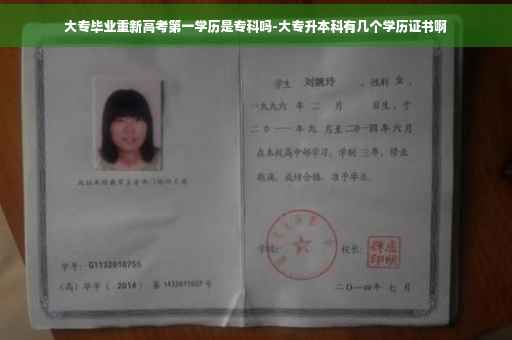 大专毕业重新高考第一学历是专科吗-大专升本科有几个学历证书啊
学生 刘婉玲 ,性别 女 ,
一九九六 年 二 月 日生,于
二〇一一年九 月至二〇一四年六月
在本校高中部学习,学制 三年,修业
期满,成绩合格,准予毕业。
学号: G1132010755
(高)毕字( 2014 )第 1432011607 号
学校:
校长:
二〇一四年 七 月